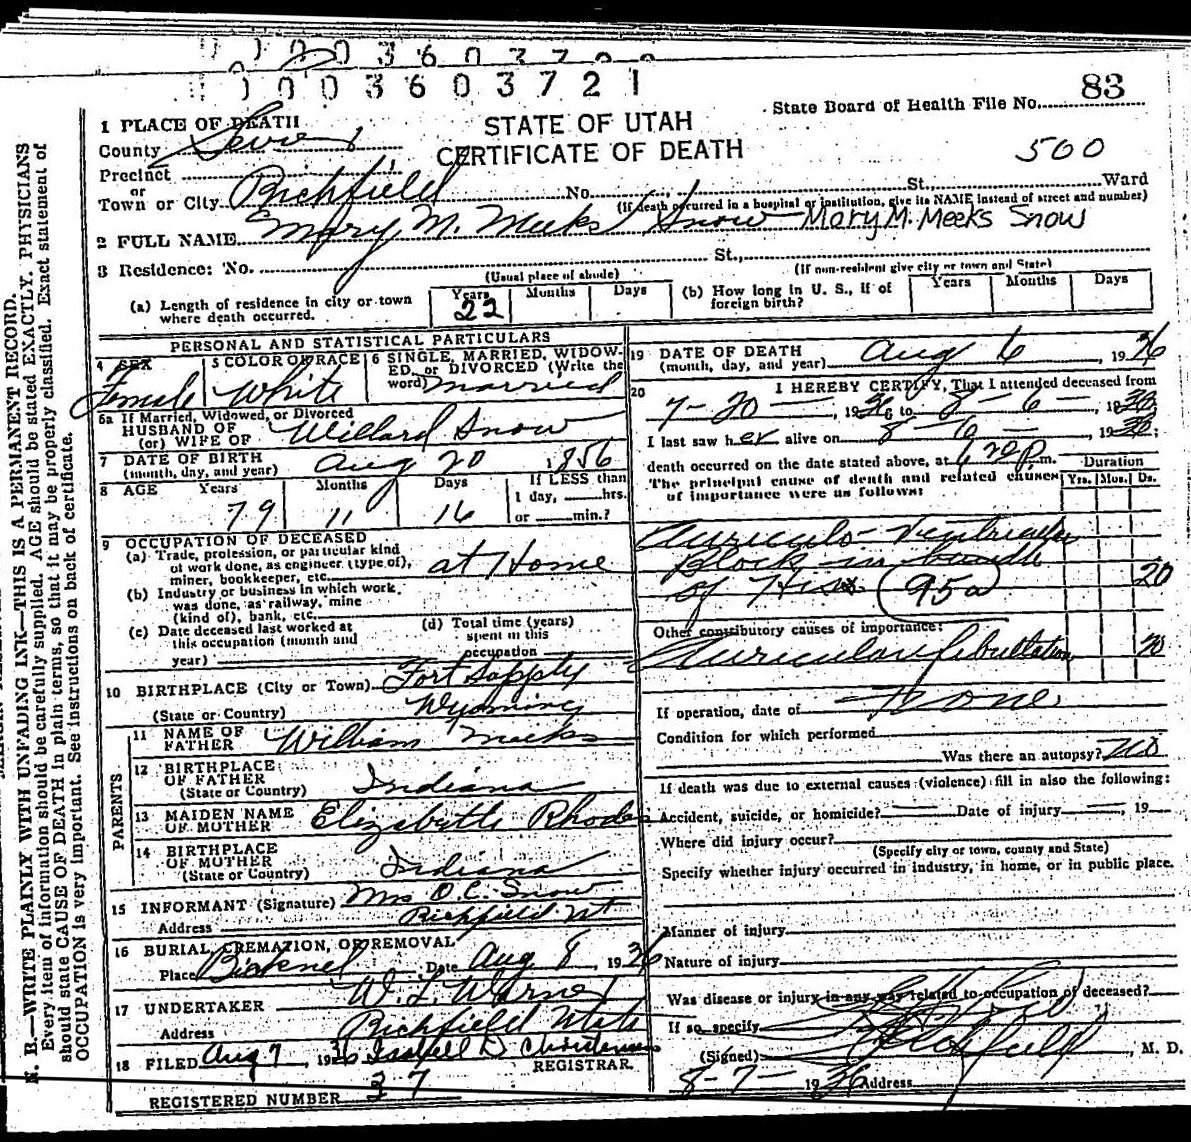 0003603721
83
State Board of Health File No.
STATE OF UTAH
CERTIFICATE OF DEATH
500
1 PLACE OF DEATH
County Sevier
Precinct
or
Town or City Richfield No. St., Ward
(If death occurred in a hospital or institution, give its NAME instead of street and number)
2 FULL NAME Mary M. Meeks Snow Mary M. Meeks Snow
3 Residence: No. St.,
(Usual place of abode) (If non-resident give city or town and State)
(a) Length of residence in city or town where death occurred. Years 22 Months Days
(b) How long in U. S., if of foreign birth? Years Months Days
PERSONAL AND STATISTICAL PARTICULARS
4 SEX Female
5 COLOR OR RACE White
6 SINGLE, MARRIED, WIDOWED, or DIVORCED (Write the word) married
6a If Married, Widowed, or Divorced
HUSBAND OF
(or) WIFE OF Willard Snow
7 DATE OF BIRTH
(month, day, and year) Aug 20 1856
8 AGE Years 79 Months 11 Days 16
If LESS than
1 day, hrs.
or min.?
9 OCCUPATION OF DECEASED
(a) Trade, profession, or particular kind
of work done, as engineer (type of),
miner, bookkeeper, etc. at Home
(b) Industry or business in which work
was done, as railway, mine
(kind of), bank, etc.
(c) Date deceased last worked at
this occupation (month and
year)
(d) Total time (years)
spent in this
occupation
10 BIRTHPLACE (City or Town) Fort Supply
(State or Country) Wyoming
PARENTS
11 NAME OF
FATHER William Meeks
12 BIRTHPLACE
OF FATHER
(State or Country) Indiana
13 MAIDEN NAME
OF MOTHER Elizabeth Rhodes
14 BIRTHPLACE
OF MOTHER
(State or Country) Indiana
15 INFORMANT (Signature) Mrs O. C. Snow
Address Richfield Ut
16 BURIAL, CREMATION, OR REMOVAL
Place Bicknel Date Aug 8, 1936
17 UNDERTAKER W. L. Warner
Address Richfield Utah
18 FILED Aug 7 1936 Isabell D
REGISTRAR.
REGISTERED NUMBER 37
19 DATE OF DEATH
(month, day, and year) Aug 6, 1936
20 I HEREBY CERTIFY, That I attended deceased from
7-20-, 1936 to 8-6-, 1936
I last saw her alive on 8-6-, 1936;
death occurred on the date stated above, at 6 20 p.m.
The principal cause of death and related causes
of importance were as follows:
Duration
Yrs. Mos. Ds.
Auriculo-Ventricular
Block in bundle
of Hiss (95a) 20
Other contributory causes of importance:
Auricular fibullation 20
If operation, date of None
Condition for which performed
Was there an autopsy? no
If death was due to external causes (violence) fill in also the following:
Accident, suicide, or homicide? Date of injury , 19
Where did injury occur?
(Specify city or town, county and State)
Specify whether injury occurred in industry, in home, or in public place.
Manner of injury
Nature of injury
Was disease or injury in any way related to occupation of deceased?
If so, specify
(Signed) , M. D.
8-7- 1936 Address Richfield
N. B.—WRITE PLAINLY WITH UNFADING INK—THIS IS A PERMANENT RECORD.
Every item of information should be carefully supplied. AGE should be stated EXACTLY. PHYSICIANS
should state CAUSE OF DEATH in plain terms, so that it may be properly classified. Exact statement of
OCCUPATION is very important. See instructions on back of certificate.